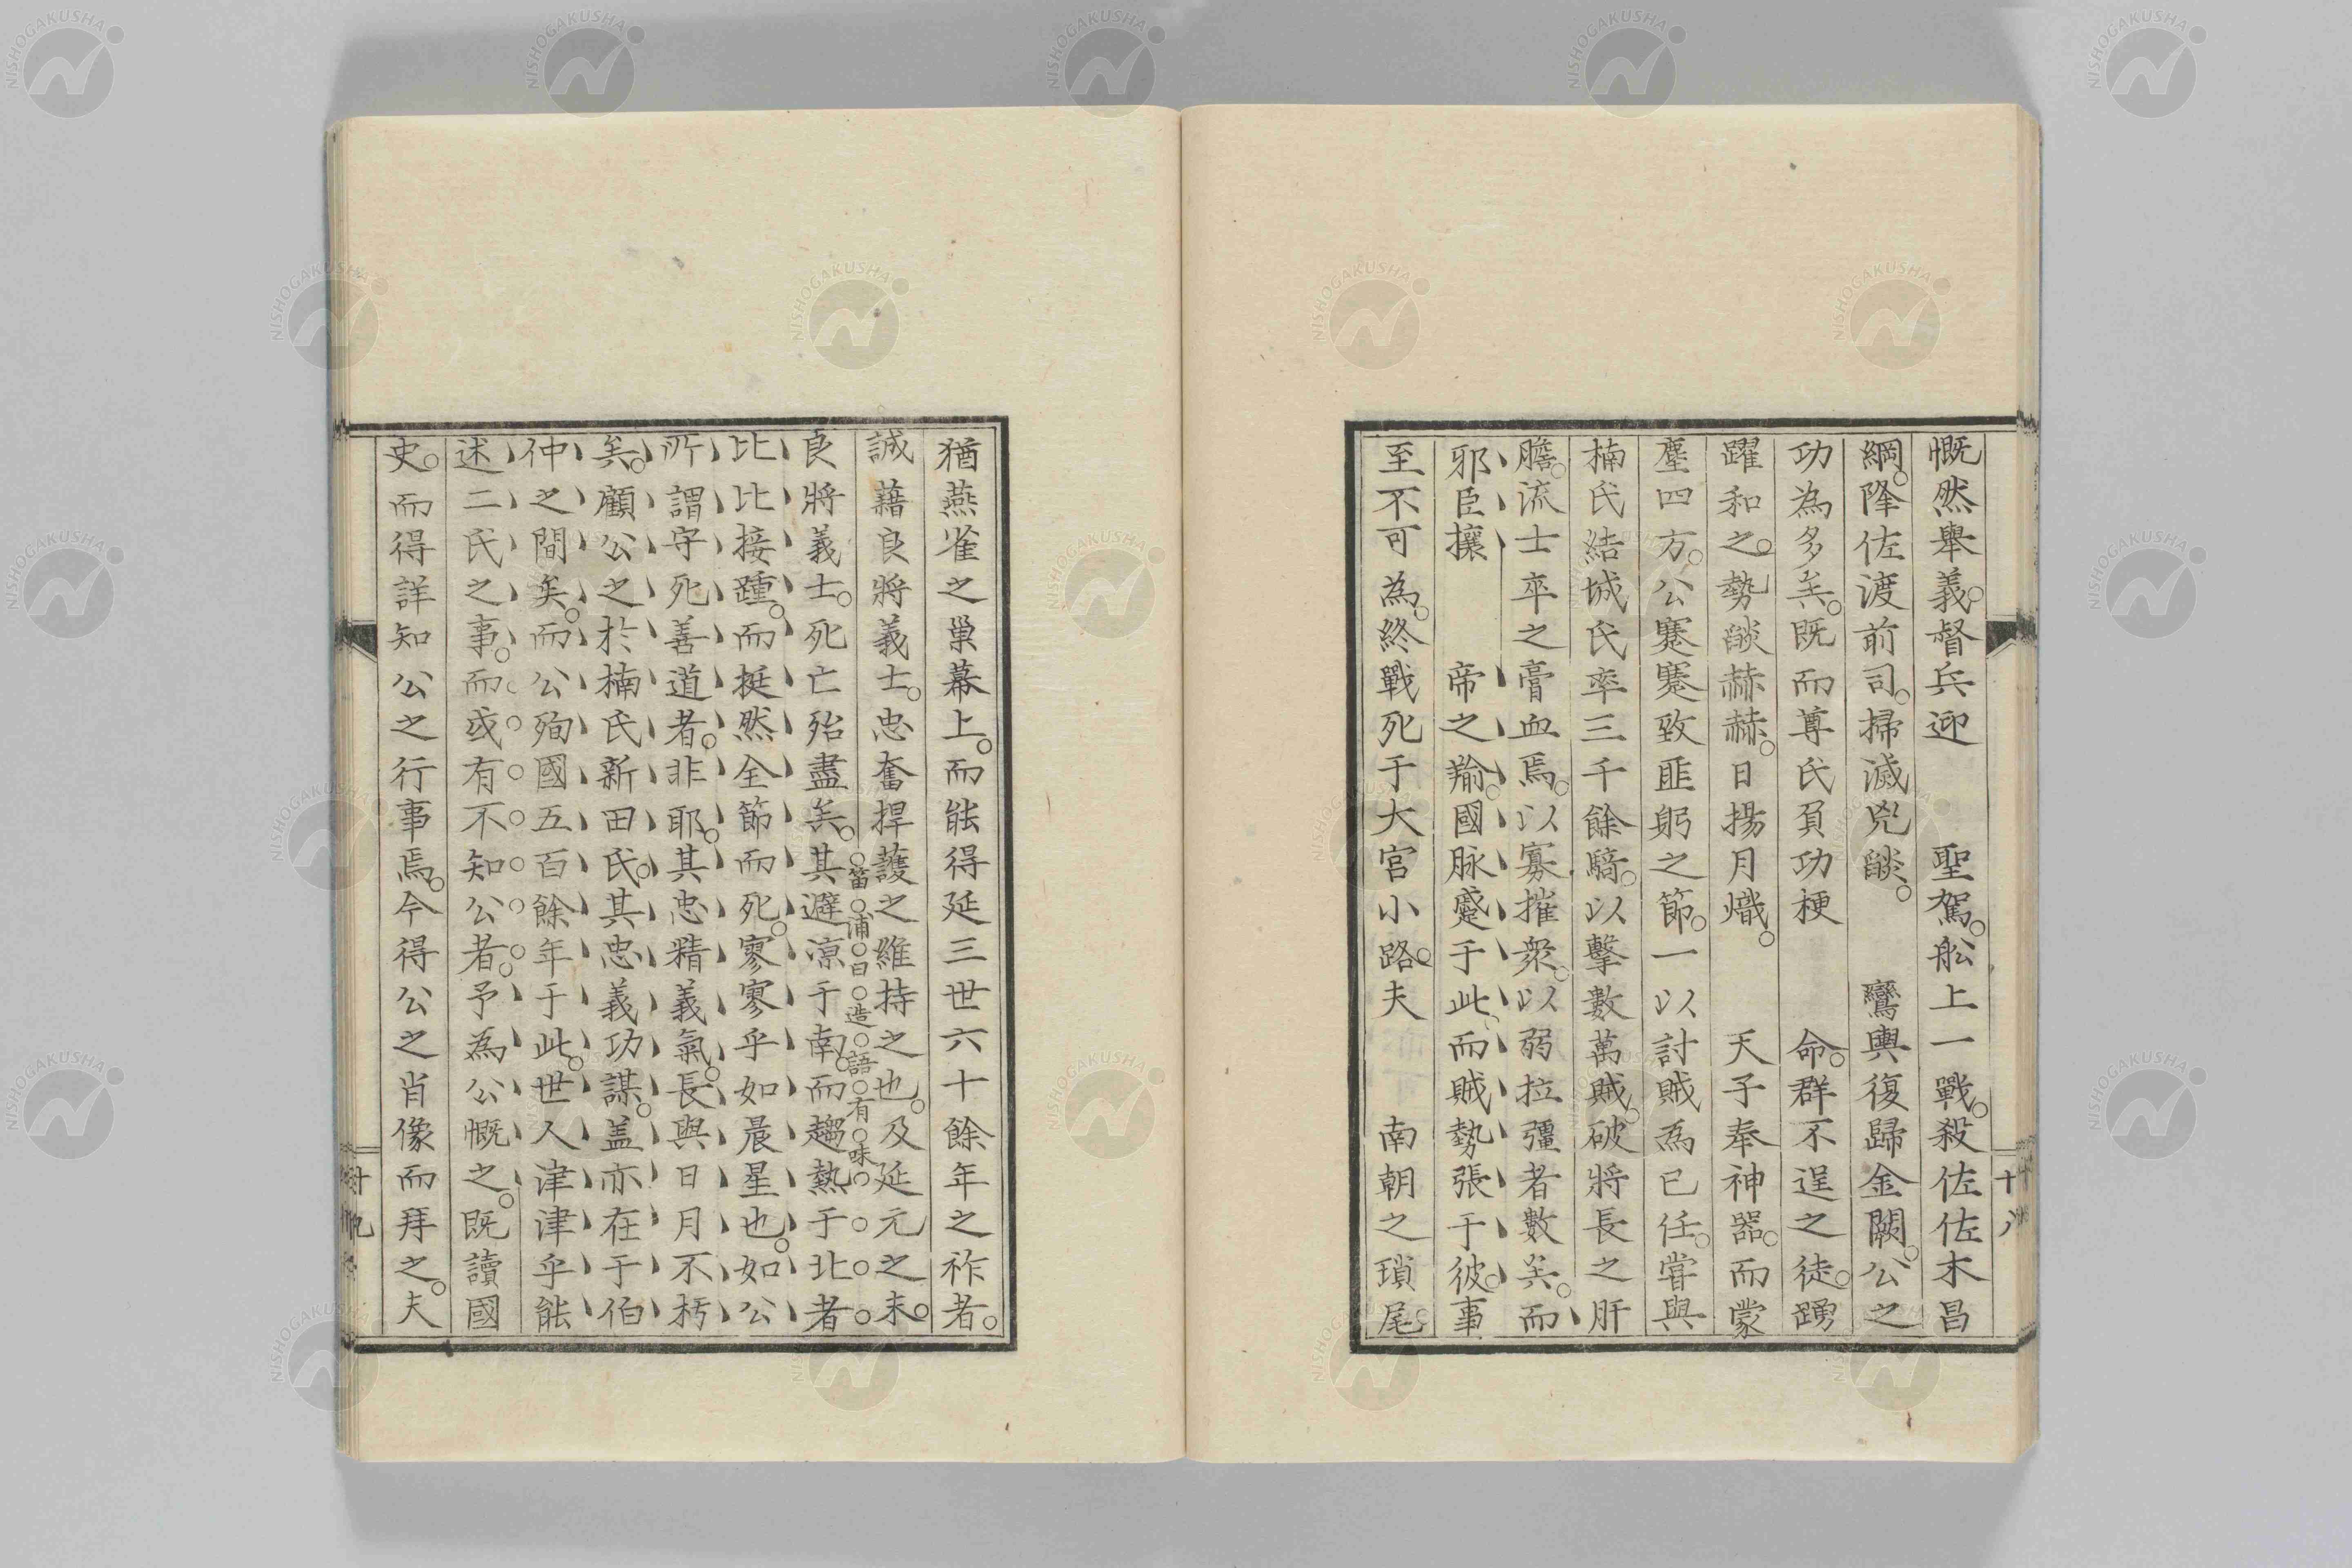 慨然舉義。督兵迎　聖駕。舩上一戰。殺佐佐木昌
綱。降佐渡前司。掃滅兇燄。　鸞輿復歸金闕。公之
功為多矣。既而尊氏負功梗　命。群不逞之徒。踴
躍和之。勢燄赫赫。日揚月熾。　天子奉神器。而蒙
塵四方。公蹇蹇致匪躬之節。一以討賊為已任。甞與
楠氏結城氏率三千餘騎。以擊數萬賊。破將長之肝
膽。流士卒之膏血焉。以寡摧衆。以弱拉彊者數矣。而
邪臣攘　帝之羭。國脉蹙于此。而賊勢張于彼。事
至不可為。終戰死于大宮小路。夫　南朝之瑣尾。
十八
猶燕雀之巢幕上。而能得延三世六十餘年之祚者。
誠藉良將義士。忠奮捍護之維持之也。及延元之末。
良將義士。死亡殆盡矣。其避凉于南。而趨熱于北者
笛浦曰造語有味
比比接踵。而挺然全節而死。寥寥乎如晨星也。如公
所謂守死善道者。非耶。其忠精義氣。長與日月不朽
矣。顧公之於楠氏新田氏。其忠義功謀。盖亦在于伯
仲之間矣。而公殉國五百餘年于此。世人津津乎能
述二氏之事。而或有不知公者。予為公慨之。既讀國
史。而得詳知公之行事焉。今得公之肖像而拜之。夫
十九
NISHOGAKUSHA